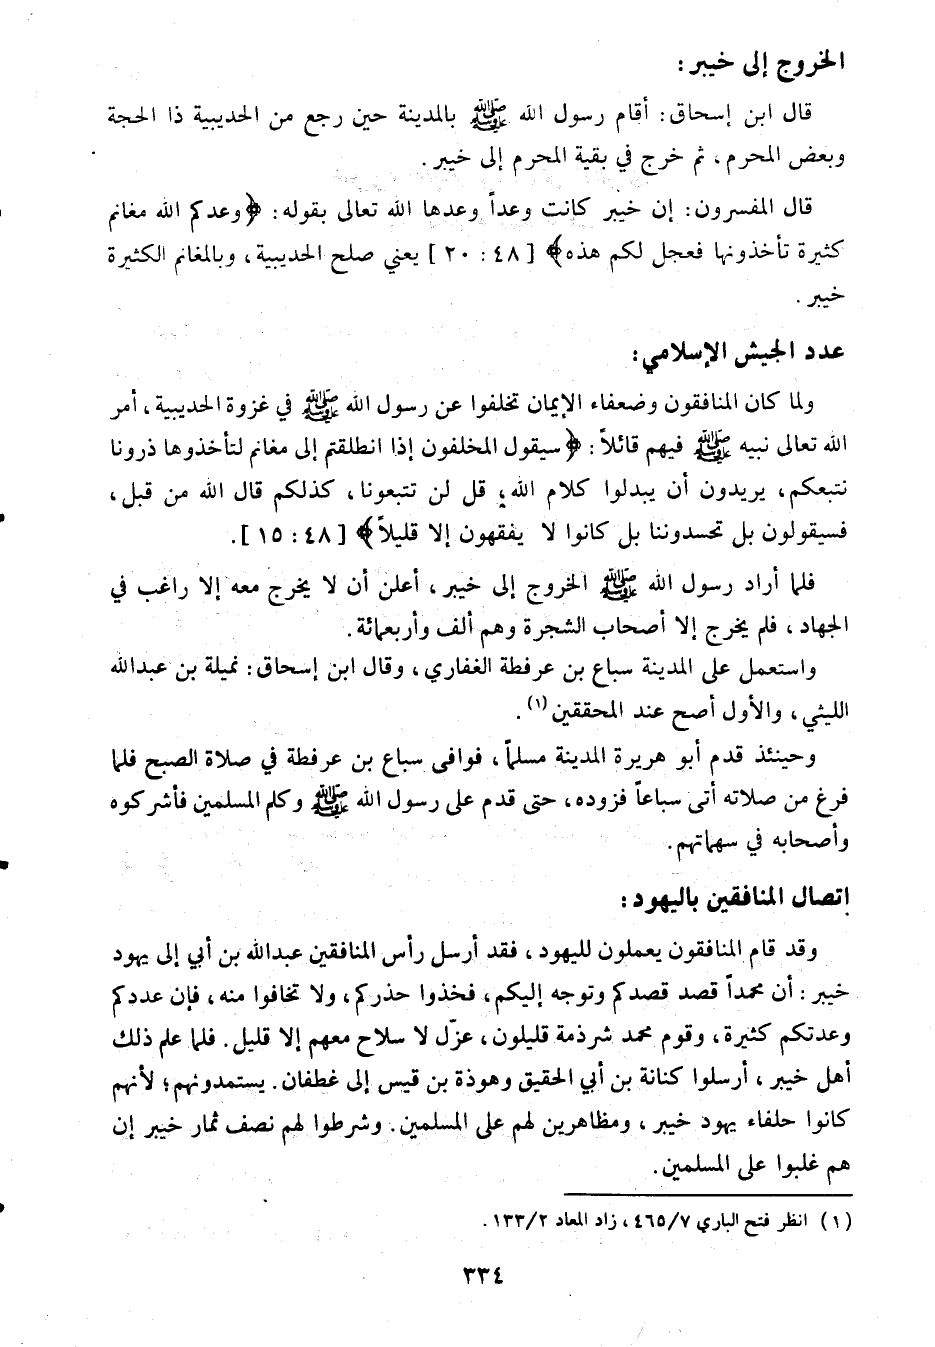 الخروج إلى خيبر :
قال ابن إسحاق : أقام رسول الله ﷺ بالمدينة حين رجع من الحديبية ذا الحجة
وبعض المحرم ، ثم خرج في بقية المحرم إلى خيبر .
قال المفسرون : إن خيبر كانت وعداً وعدها الله تعالى بقوله : ﴿ وعدكم الله مغانم
كثيرة تأخذونها فعجل لكم هذه ﴾ [ ٤٨ : ٢٠ ] يعني صلح الحديبية ، وبالمغانم الكثيرة
خيبر .
عدد الجيش الإسلامي :
ولما كان المنافقون وضعفاء الإيمان تخلفوا عن رسول الله ﷺ في غزوة الحديبية ، أمر
الله تعالى نبيه ﷺ فيهم قائلاً : ﴿ سيقول المخلفون إذا انطلقتم إلى مغانم لتأخذوها ذرونا
نتبعكم ، يريدون أن يبدلوا كلام الله ؛ قل لن تتبعونا ، كذلكم قال الله من قبل ،
فسيقولون بل تحسدوننا بل كانوا لا يفقهون إلا قليلاً ﴾ [ ٤٨ : ١٥ ] .
فلما أراد رسول الله ﷺ الخروج إلى خيبر ، أعلن أن لا يخرج معه إلا راغب في
الجهاد ، فلم يخرج إلا أصحاب الشجرة وهم ألف وأربعمائة .
واستعمل على المدينة سباع بن عرفطة الغفاري ، وقال ابن إسحاق : نميلة بن عبدالله
الليثي ، والأول أصح عند المحققين (١) .
وحينئذ قدم أبو هريرة المدينة مسلماً ، فوافى سباع بن عرفطة في صلاة الصبح فلما
فرغ من صلاته أتى سباعاً فزوده ، حتى قدم على رسول الله ﷺ وكلم المسلمين فأشركوه
وأصحابه في سهماتهم .
إتصال المنافقين باليهود :
وقد قام المنافقون يعملون لليهود ، فقد أرسل رأس المنافقين عبدالله بن أبي إلى يهود
خيبر : أن محمداً قصد قصدكم وتوجه إليكم ، فخذوا حذركم ، ولا تخافوا منه ، فإن عددكم
وعدتكم كثيرة ، وقوم محمد شرذمة قليلون ، عزّل لا سلاح معهم إلا قليل . فلما علم ذلك
أهل خيبر ، أرسلوا كنانة بن أبي الحقيق وهوذة بن قيس إلى غطفان . يستمدونهم ؛ لأنهم
كانوا حلفاء يهود خيبر ، ومظاهرين لهم على المسلمين . وشرطوا لهم نصف ثمار خيبر إن
هم غلبوا على المسلمين .
(١) انظر فتح الباري ٤٦٥/٧ ، زاد المعاد ١٣٣/٢ .
٣٣٤